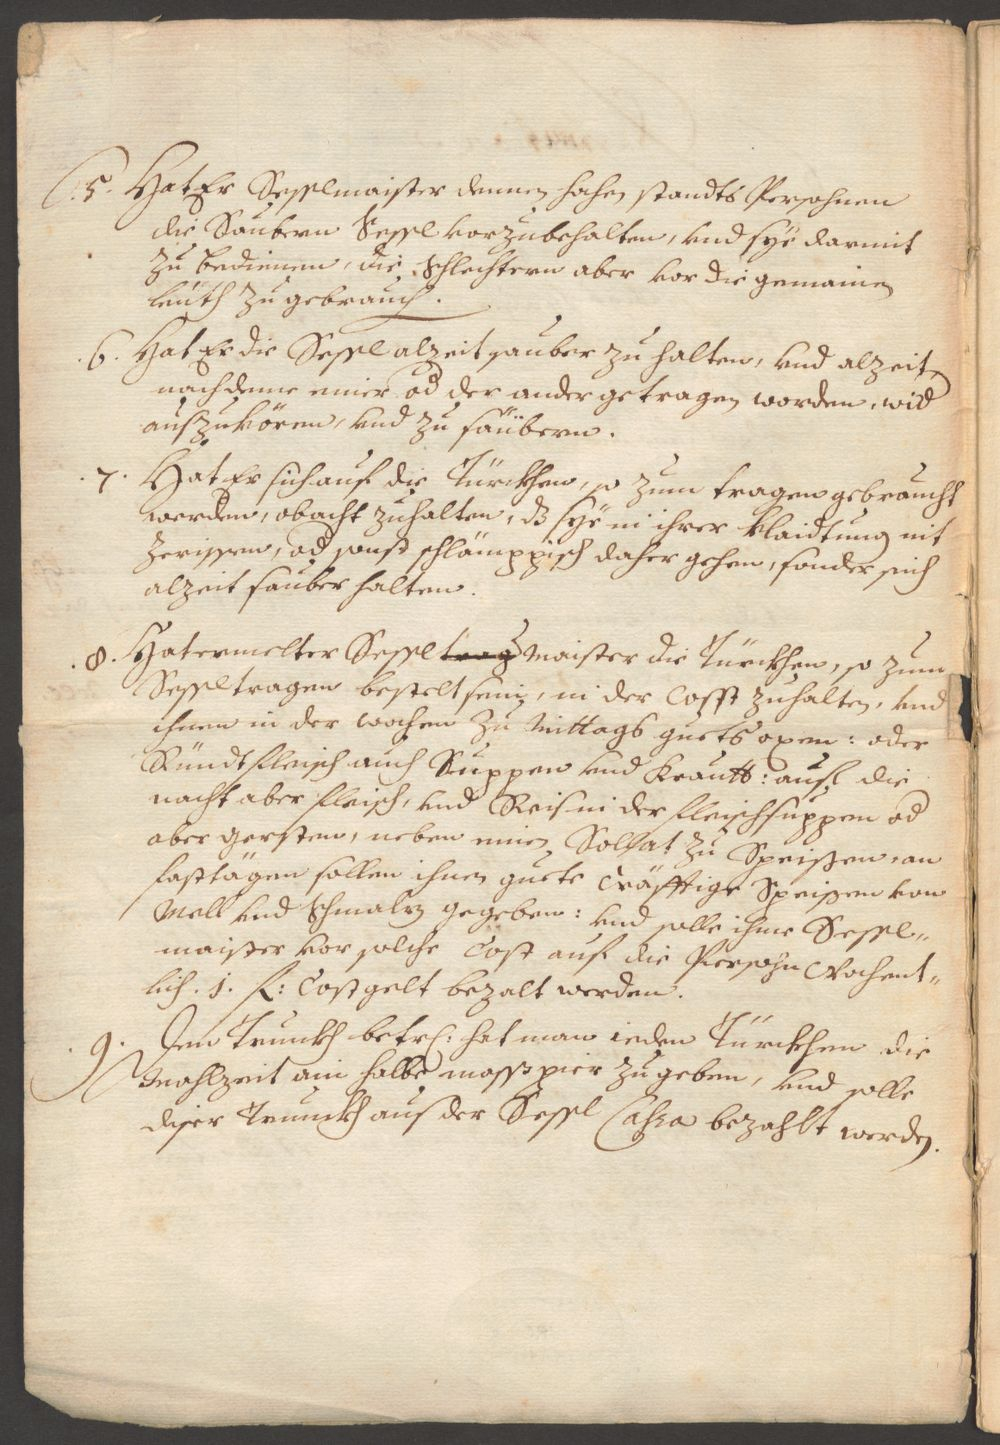 5. Hat Er Sesslmaister dennen hohen standts Persohnen
die Saubern Sessl vorzubehalten, vnd sye darmit
zu bedienen, die Schlechtern aber vor die gemainen
leüth zu gebrauch.
.6. Hat Er die Sessl alzeit sauber zu halten, vnd alzeit
nachdeme einer od der ander getragen worden, wid
auszukören, vnd zu säubern.
.7. Hat Er sich auf die Türckhen, so zum tragen gebraucht
werden, obacht zuhalten, dz sye in ihrer klaidtung nit
zerissen, od sonst schlämppisch daher gehen, sonder sich
alzeit sauber halten.
.8. Hat ermelter Sessltrag Maister die Türckhen, so zum
Sessltragen bestelt sein, in der Cosst zuhalten, vnd
ihnen in der wochen zu Mittags guets oxen: oder
Ründtfleisch auch Suppen vnd Krautt: auf die
nacht aber fleisch, vnd Reis in der fleischsuppen od
aber gersten, neben einen Sallat zu Speißen, an
fasttägen sollen ihnen guete Cräfftige Speißen von
Mell vnd Schmalz gegeben: vnd solle ihme Sessl„
maister vor solche Cost auf die Persohn Wochent„
lich. 1. f: Costgelt bezalt werden.
.9. Den Trunckh betrf: hat man ieden Türckhen die
Mahlzeit ain halbe mass pier zu geben, vnd solle
diser Trunckh aus der Sessl Cassa bezahlt werden.